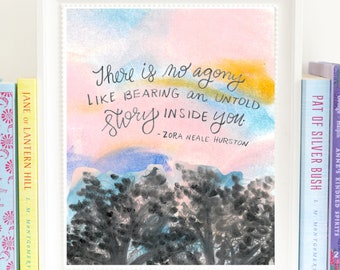 There is no agony
LIKE BEARING an UNTOLD
Story INSIDE You
- ZORA NEALE HURSTON
JANE OF LANTERN HILL
L. M. MONTGOMERY
PAT OF SILVER BUSH
L. M. MONTGOMERY